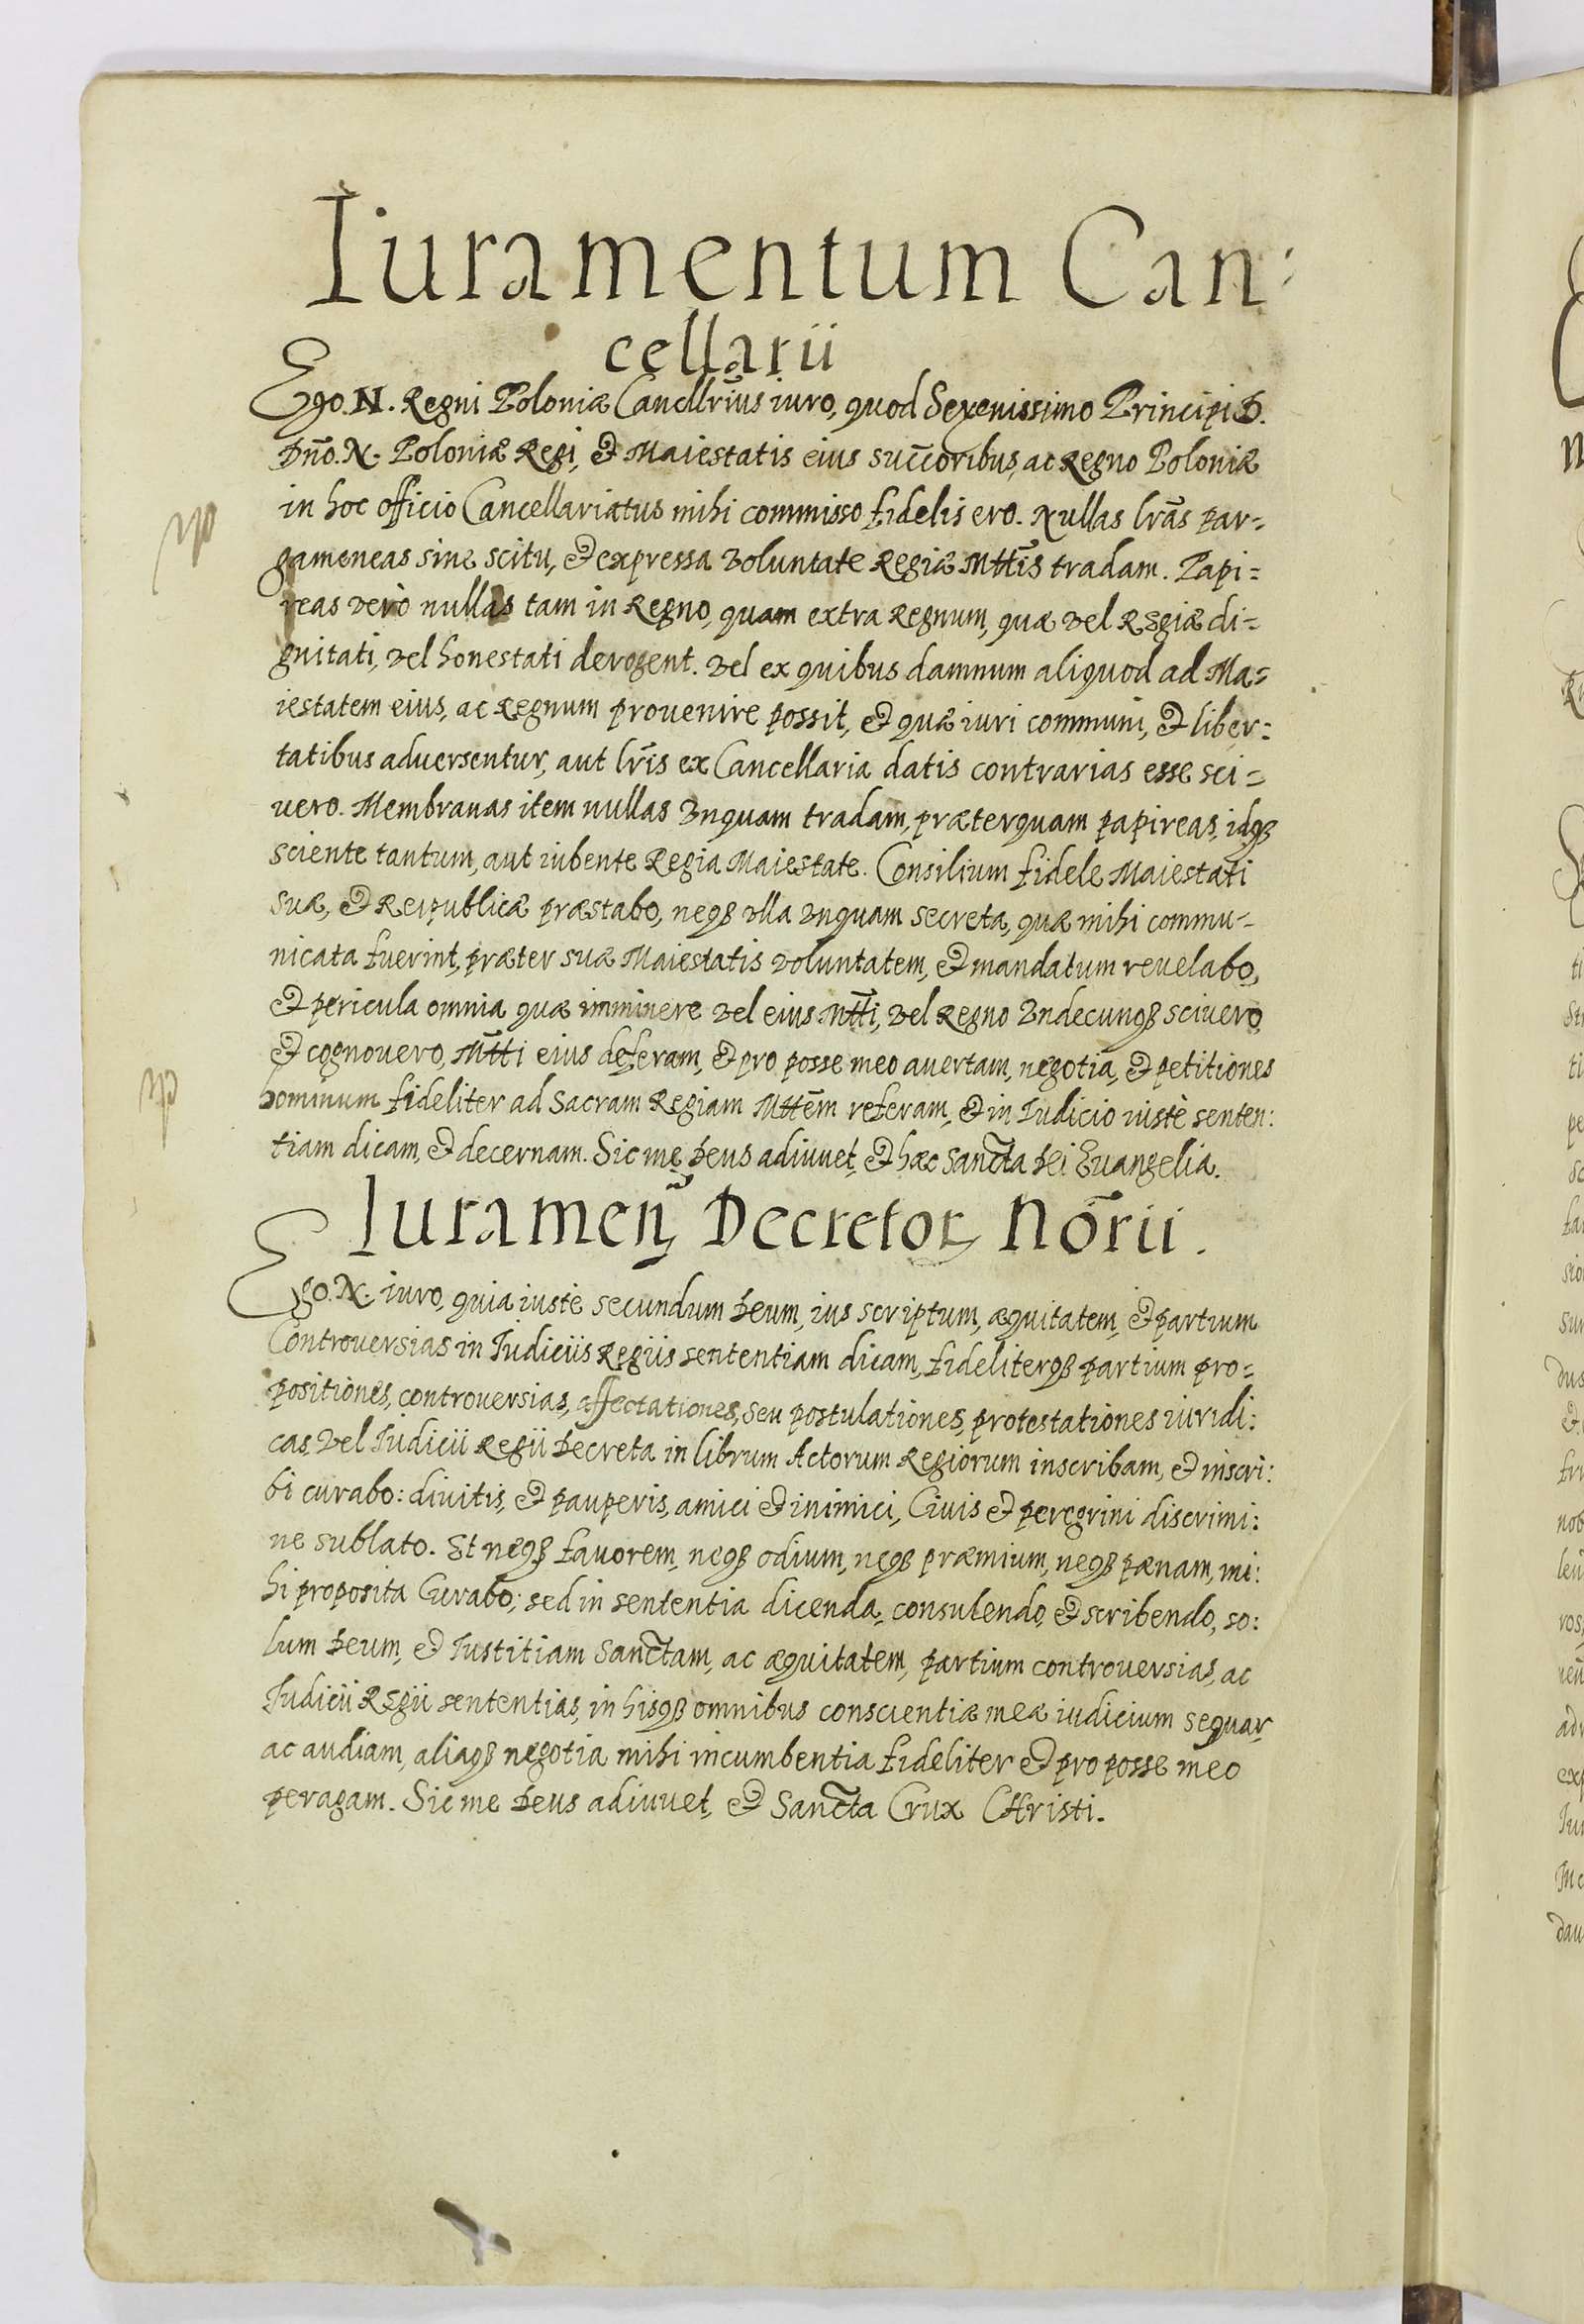 Iuramentum Can:
cellarii
Ego. N. Regni Poloniæ Cancllr̃ius iuro, quod Serenissimo Principi D.
Dn̄o. N. Poloniæ Regi, et Maiestatis eius suc̄coribus, ac Regno Poloniæ
in hoc officio Cancellariatus mihi commisso fidelis ero. Nullas lr̃as par=
gameneas sine scitu, et expressa voluntate Regiæ Mtt̄is tradam. Papi=
reas verò nullas tam in Regno, quam extra Regnum, quæ vel Regiæ di=
gnitati, vel honestati derogent. vel ex quibus damnum aliquod ad Ma=
iestatem eius, ac Regnum prouenire possit, et quæ iuri communi, et liber=
tatibus aduersentur, aut lr̃is ex Cancellaria datis contrarias esse sci=
uero. Membranas item nullas vnquam tradam, præterquam papireas, idqȝ
sciente tantum, aut iubente Regia Maiestate. Consilium fidele Maiestati
suæ, et Reipublicæ præstabo, neqȝ vlla vnquam secreta, quæ mihi commu=
nicata fuerint, præter suæ Maiestatis voluntatem, et mandatum reuelabo,
et pericula omnia quæ imminere vel eius Mtt̄i, vel Regno vndecunqȝ sciuero,
et cognouero, Mtt̄i eius deferam, et pro posse meo auertam, negotia, et petitiones
hominum fideliter ad Sacram Regiam Mtt̄em referam, et in Iudicio iustè senten:
tiam dicam, et decernam. Sic me Deus adiuuet, et hæc Sancta Dei Euangelia.
Iuramen̄ Decretoꝝ Nōrii.
Ego. N. iuro, quia iustè secundum Deum, ius scriptum, æquitatem, et partium
Controuersias in Iudiciis Regiis sententiam dicam, fideliterqȝ partium pro=
positiones, controuersias, affectationes, seu postulationes, protestationes iuridi:
cas, vel Iudicii Regii Decreta in librum Actorum Regiorum inscribam, et inscri:
bi curabo: diuitis, et pauperis, amici et inimici, Ciuis et peregrini discrimi:
ne sublato. Et neqȝ fauorem, neqȝ odium, neqȝ præmium, neqȝ pænam, mi:
hi proposita Curabo; sed in sententia dicenda, consulendo, et scribendo, so:
lum Deum, et Iustitiam Sanctam, ac æquitatem, partium controuersias, ac
Iudicii Regii sententias, in hisqȝ omnibus conscientiæ meæ iudicium sequar,
ac audiam, aliaqȝ negotia mihi incumbentia fideliter et pro posse meo
peragam. Sic me Deus adiuuet, et Sancta Crux CHristi.